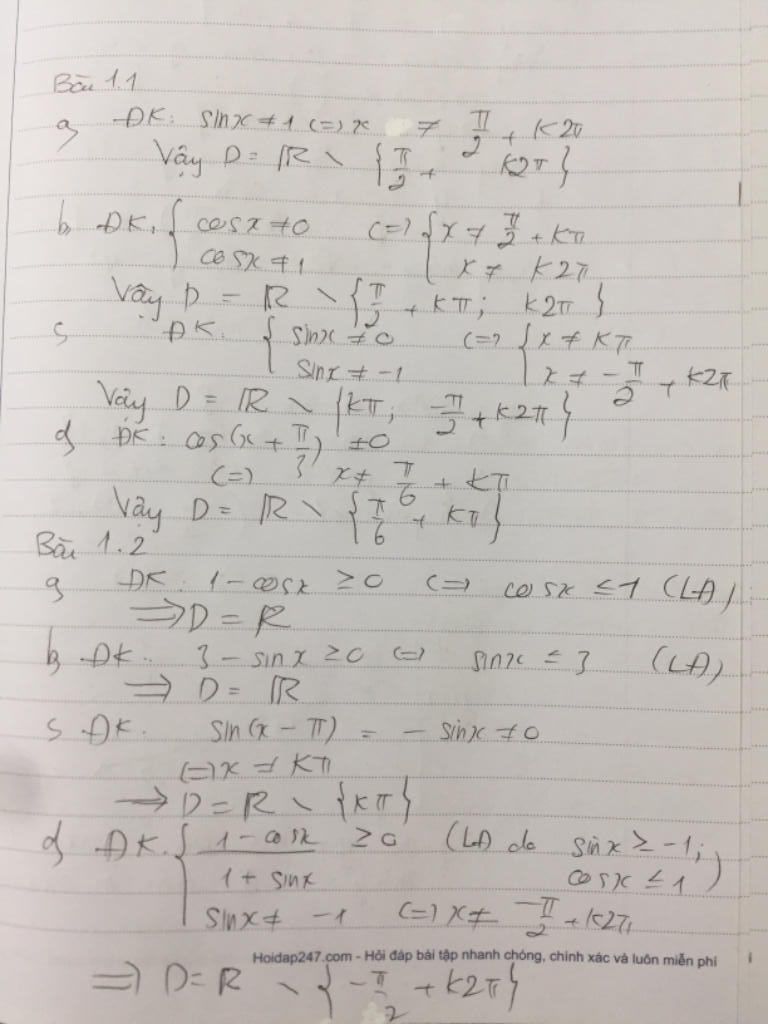 Bài 1.1
a, ĐK: sinx ≠ 1 (=) x ≠ π/2 + K2π
Vậy D = R \ {π/2 + K2π}
b, ĐK: { cosx ≠ 0 (=) { x ≠ π/2 + Kπ
cosx ≠ 1 x ≠ K2π
Vậy D = R \ {π/2 + Kπ; K2π}
c, ĐK: { sinx ≠ 0 (=) { x ≠ Kπ
sinx ≠ -1 x ≠ -π/2 + K2π
Vậy D = R \ {Kπ; -π/2 + K2π}
d, ĐK: cos(x + π/3) ≠ 0
(=) x ≠ π/6 + Kπ
Vậy D = R \ {π/6 + Kπ}
Bài 1.2
a, ĐK: 1 - cosx ≥ 0 (=) cosx ≤ 1 (LĐ)
=> D = R
b, ĐK: 3 - sinx ≥ 0 (=) sinx ≤ 3 (LĐ)
=> D = R
c, ĐK: sin(x - π) = - sinx ≠ 0
(=) x ≠ Kπ
=> D = R \ {Kπ}
d, ĐK: { (1 - cosx)/(1 + sinx) ≥ 0 (LĐ do sinx ≥ -1; cosx ≤ 1)
sinx ≠ -1 (=) x ≠ -π/2 + K2π
Hoidap247.com - Hỏi đáp bài tập nhanh chóng, chính xác và luôn miễn phí
=> D = R \ {-π/2 + K2π}